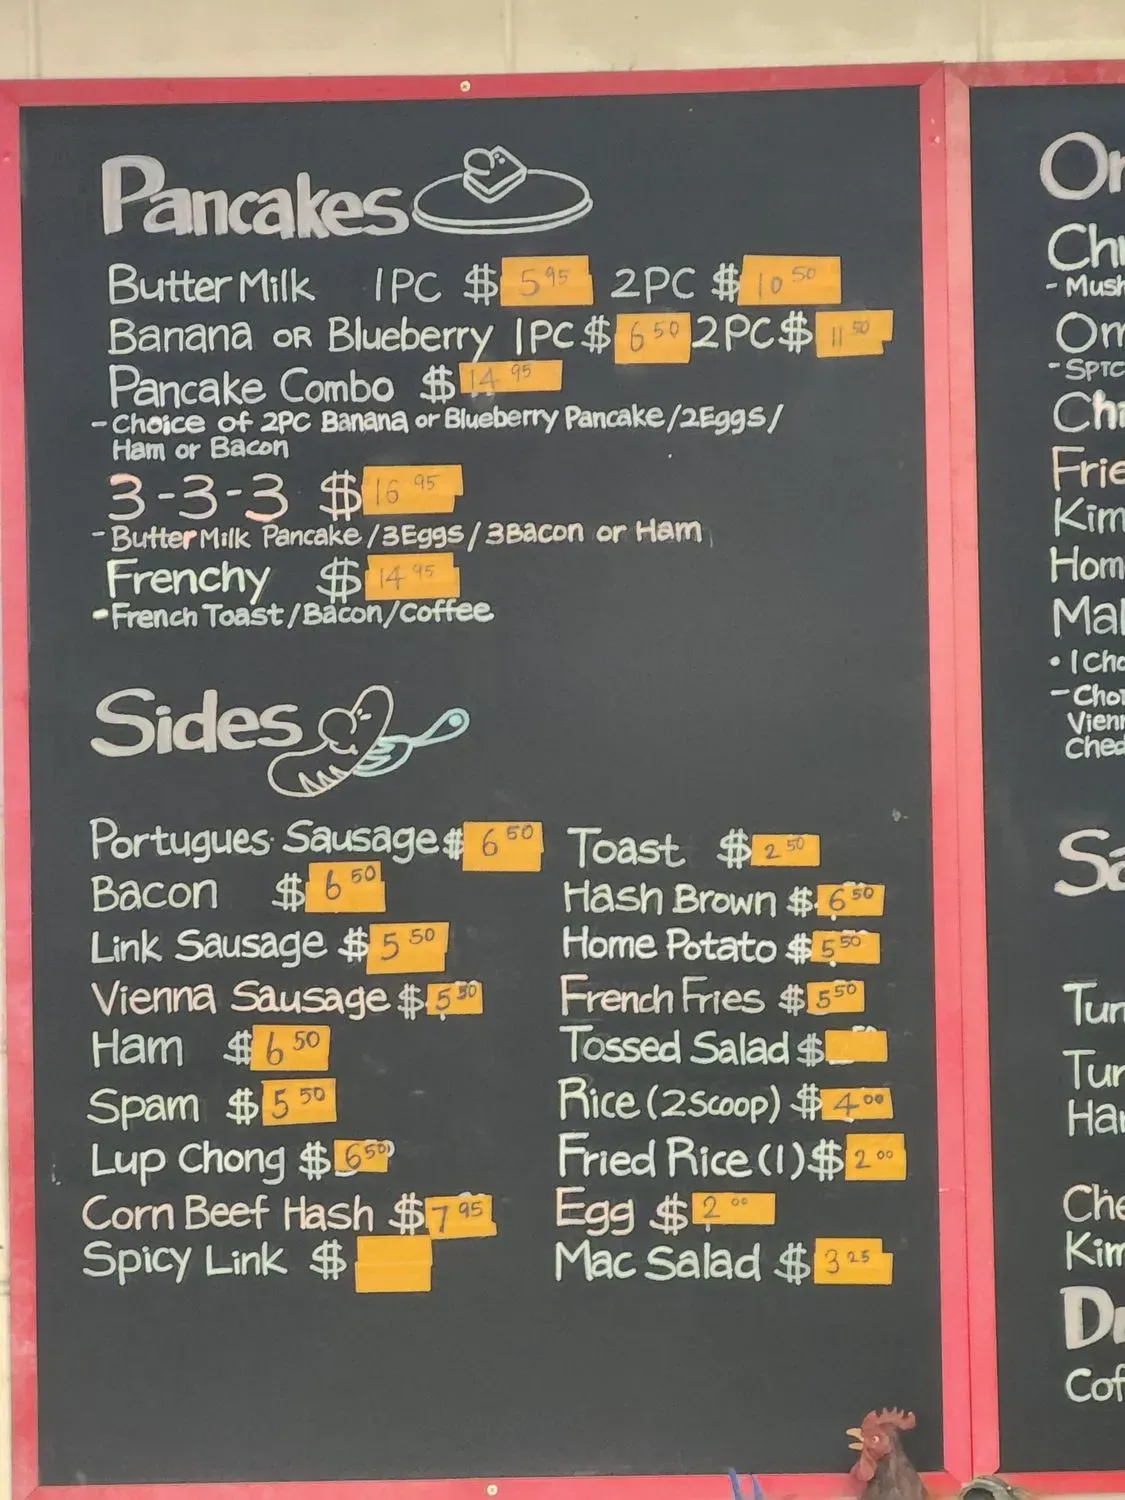 Pancakes
Butter Milk 1PC $ 5.95 2PC $ 10.50
Banana OR Blueberry 1PC $ 6.50 2PC $ 11.50
Pancake Combo $ 14.95
- Choice of 2PC Banana or Blueberry Pancake/2Eggs/
Ham or Bacon
3-3-3 $ 16.95
- Butter Milk Pancake/3Eggs/3Bacon or Ham
Frenchy $ 14.95
- French Toast/Bacon/Coffee
Sides
Portugues Sausage $ 6.50
Bacon $ 6.50
Link Sausage $ 5.50
Vienna Sausage $ 5.50
Ham $ 6.50
Spam $ 5.50
Lup Chong $ 6.50
Corn Beef Hash $ 7.95
Spicy Link $
Toast $ 2.50
Hash Brown $ 6.50
Home Potato $ 5.50
French Fries $ 5.50
Tossed Salad $
Rice (2Scoop) $ 4.00
Fried Rice (1) $ 2.00
Egg $ 2.00
Mac Salad $ 3.25